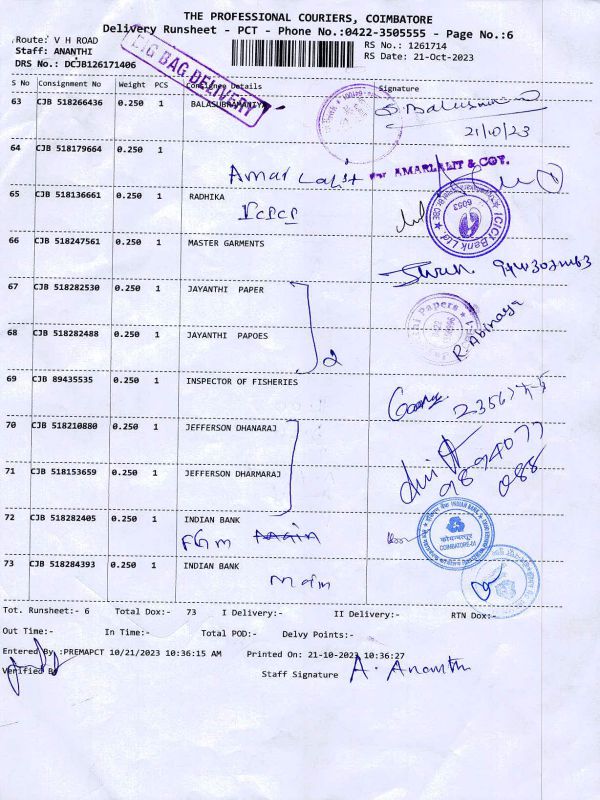 THE PROFESSIONAL COURIERS, COIMBATORE
Delivery Runsheet - PCT - Phone No.:0422-3505555 - Page No.:6
Route: V H ROAD
RS No.: 1261714
Staff: ANANTHI
RS Date: 21-Oct-2023
DRS No.: DCJB126171406
BIG BAG DELIVERY
S No Consignment No Weight PCS Consignee Details Signature
63 CJB 518266436 0.250 1 BALASUBRAMANIYA
21/10/23
64 CJB 518179664 0.250 1
Amar Lalit For AMARLALIT & COY.
65 CJB 518136661 0.250 1 RADHIKA
ICICI
ICICI Bank Ltd
6053
66 CJB 518247561 0.250 1 MASTER GARMENTS
67 CJB 518282530 0.250 1 JAYANTHI PAPER
68 CJB 518282488 0.250 1 JAYANTHI PAPOES
2
R. Abinaya
69 CJB 89435535 0.250 1 INSPECTOR OF FISHERIES
70 CJB 518210880 0.250 1 JEFFERSON DHANARAJ
9894077
088
71 CJB 518153659 0.250 1 JEFFERSON DHARMARAJ
72 CJB 518282405 0.250 1 INDIAN BANK
FGM Main
INDIAN BANK
कोयम्बत्तूर
COIMBATORE
73 CJB 518284393 0.250 1 INDIAN BANK
Main
Tot. Runsheet:- 6 Total Dox:- 73 I Delivery:- II Delivery:- RTN Dox:-
Out Time:- In Time:- Total POD:- Delvy Points:-
Entered By :PREMAPCT 10/21/2023 10:36:15 AM Printed On: 21-10-2023 10:36:27
Verified By
Staff Signature A. Ananthi